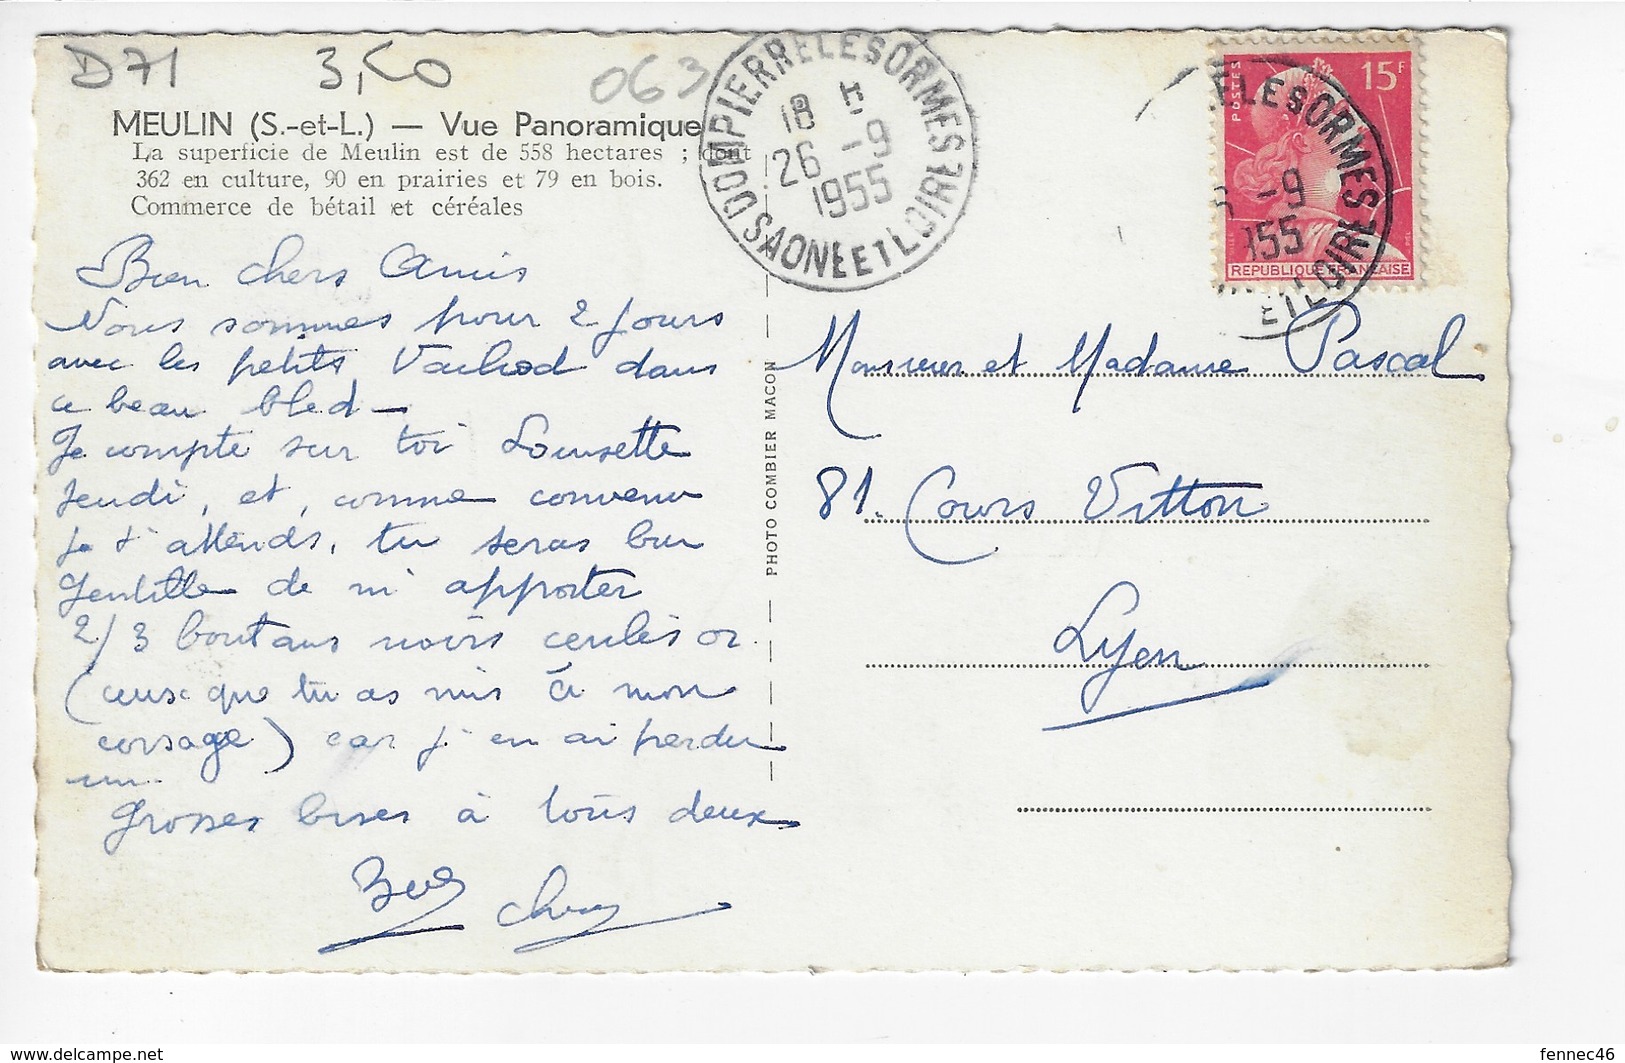 D71 3,50 063
MEULIN (S.-et-L.) — Vue Panoramique
La superficie de Meulin est de 558 hectares ; dont
362 en culture, 90 en prairies et 79 en bois.
Commerce de bétail et céréales
Bien chers Amis
Nous sommes pour 2 jours
avec les petits Vachod dans
ce beau bled —
Je compte sur toi Lousette
Jeudi, et, comme convenu
je t'attends, tu seras bien
gentille de m'apporter
2/3 boutons noirs cerclés or
(ceux que tu as mis à mon
corsage) car j'en ai perdu
un.
Grosses bises à tous deux
PHOTO COMBIER MACON
DOMPIERRE LES ORMES
18 H
26 -9
1955
SAONE ET LOIRE
POSTES
15F
REPUBLIQUE FRANÇAISE
ELESORMES
-9
155
ET LOIRE
Monsieur et Madame Pascal
81. Cours Vitton
Lyon
delcampe.net
fennec46